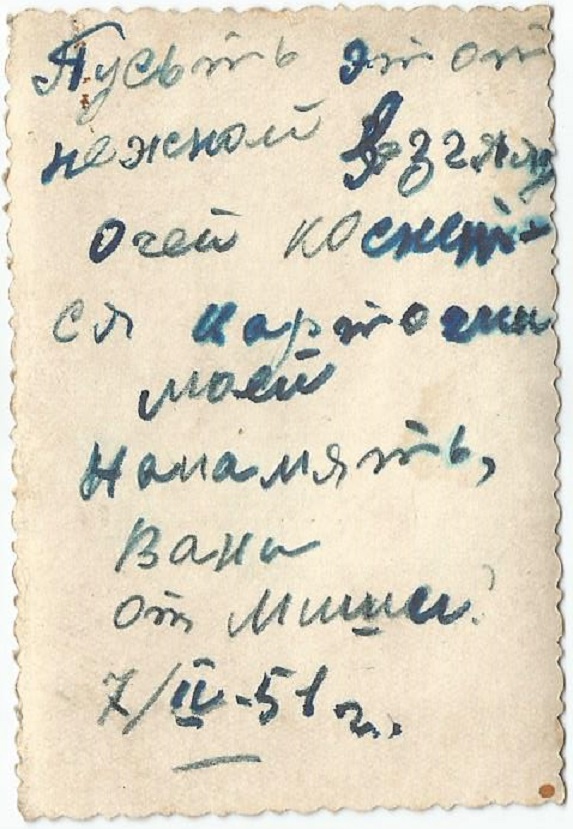 Пусьть этот
нежной взгляд
очей коснет-
ся карточки
моей
Напамять,
Вани
от Миши.
7/II-51 г.